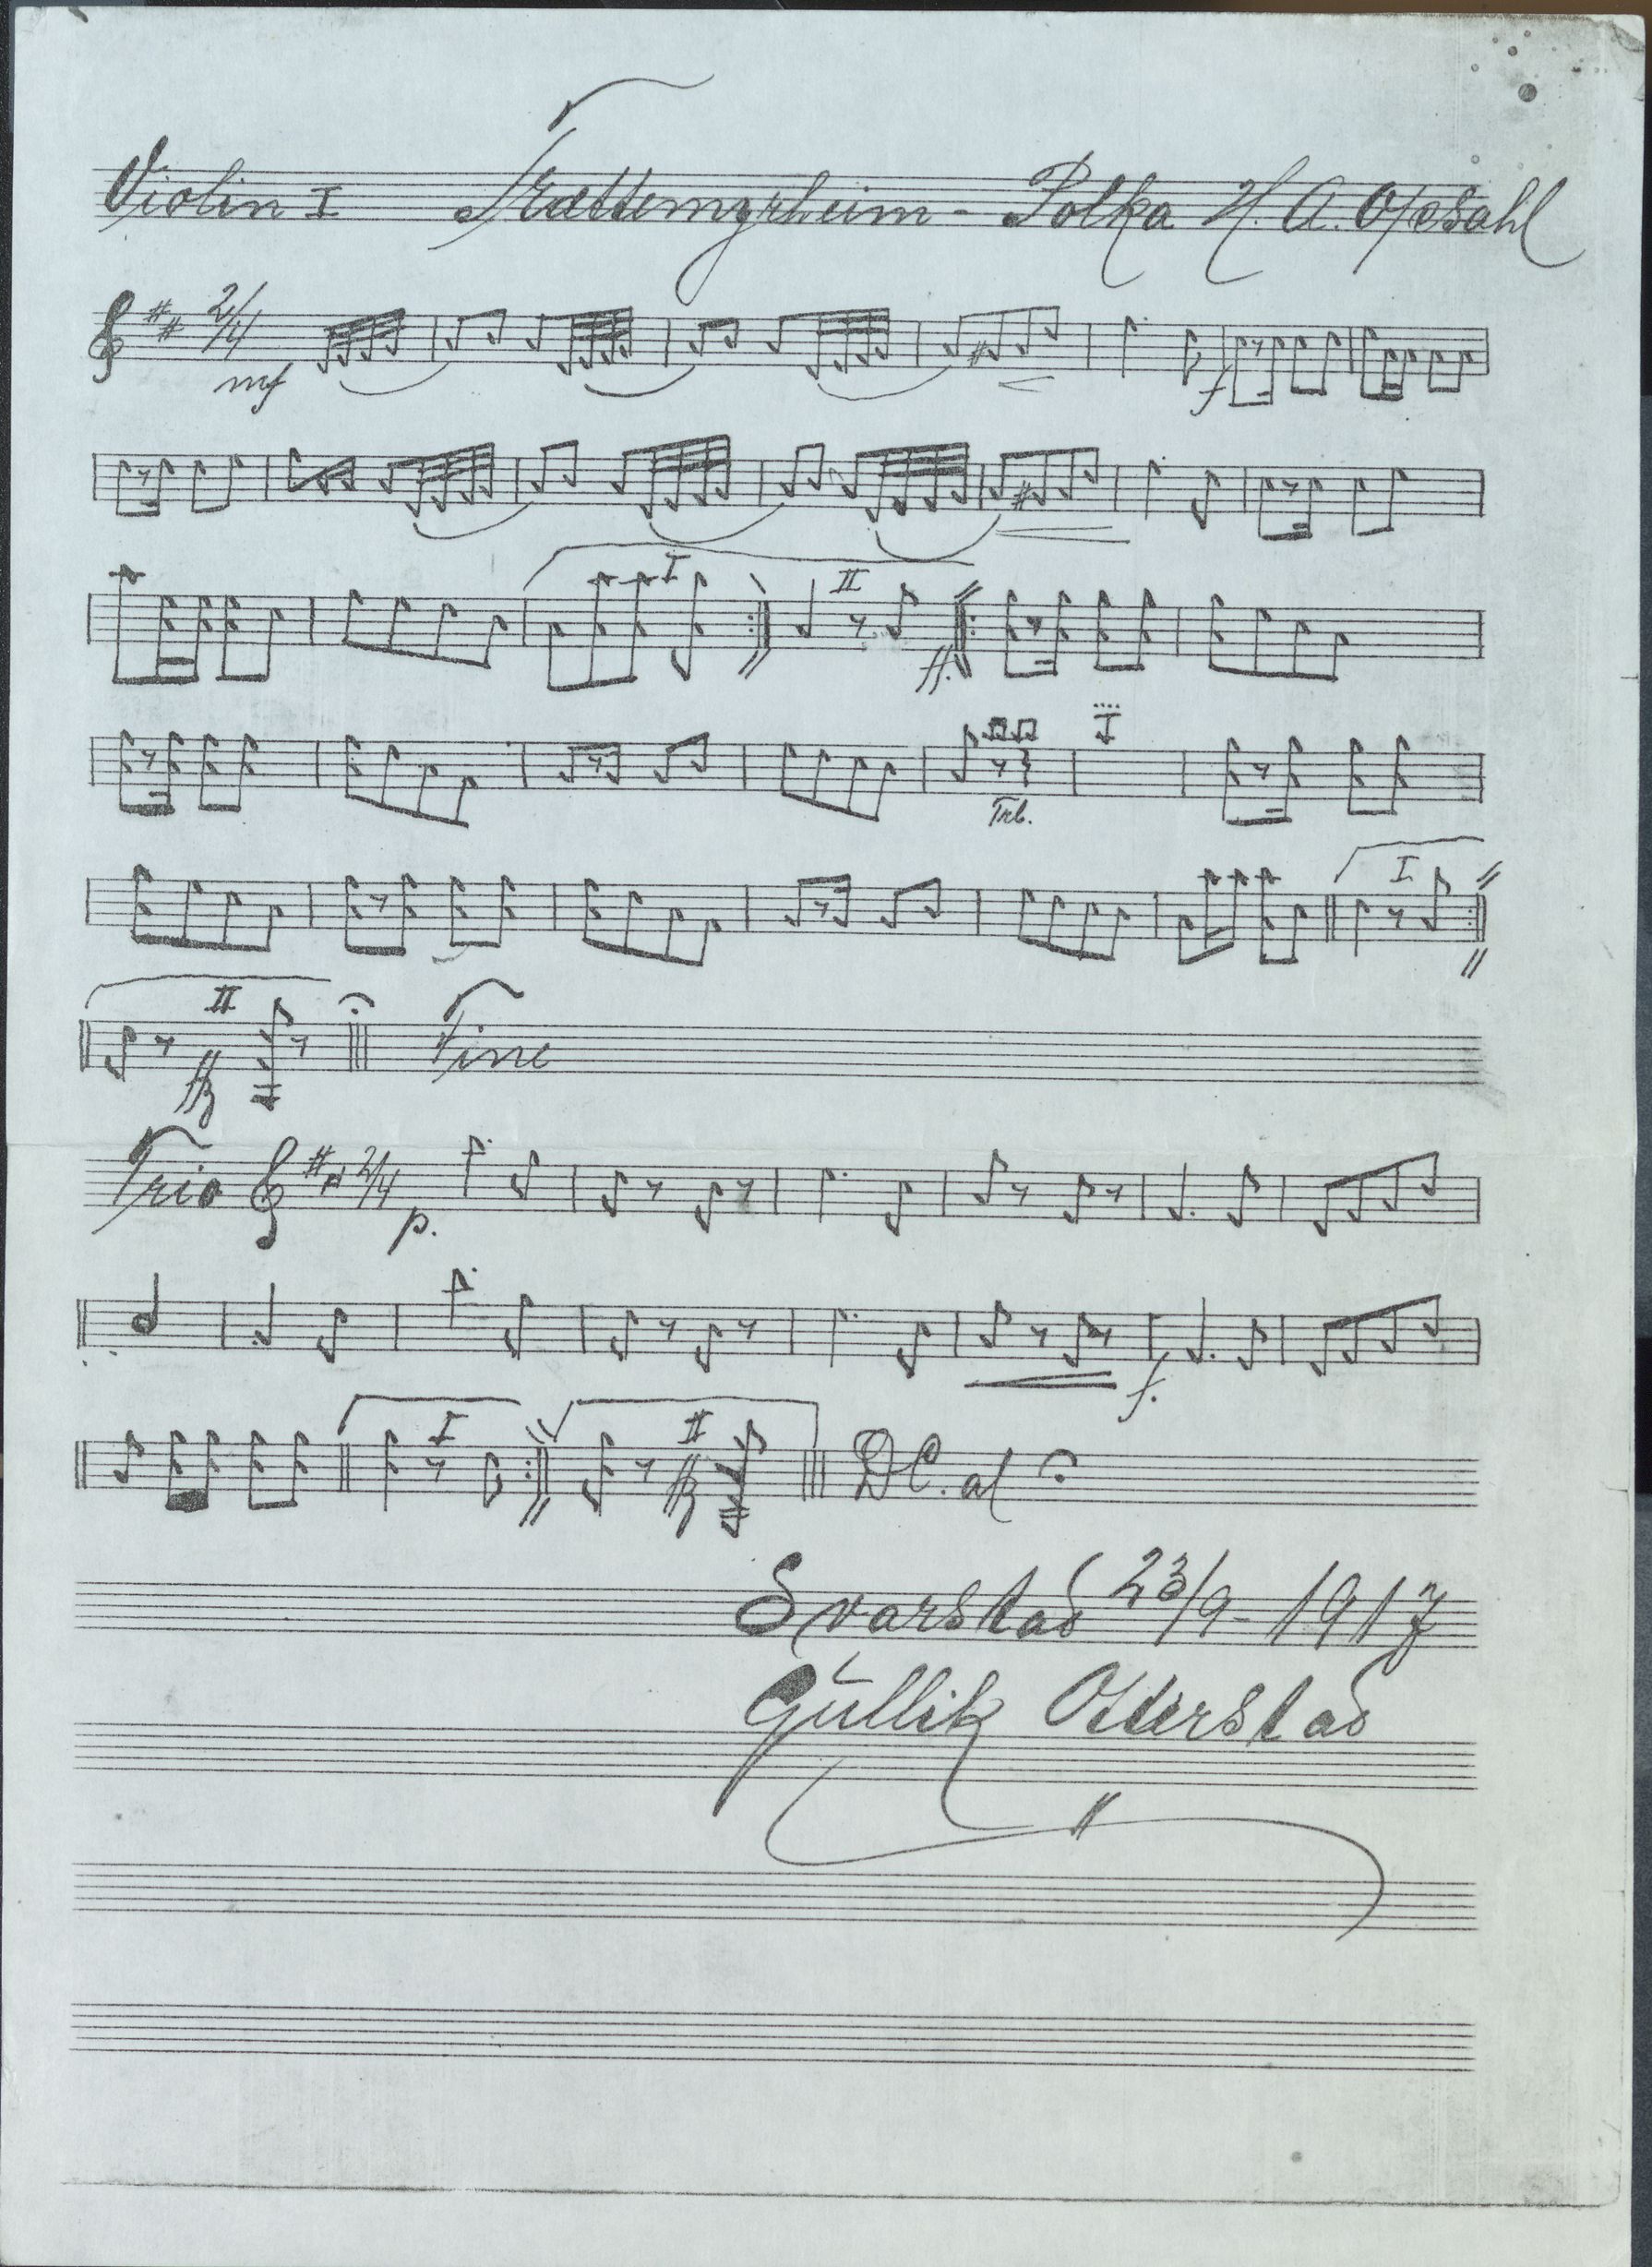 Violin I Trættemyrheim - Polka H. A. Opsahl
2/4
mf
f
I II
ff.
Trb.
I
II
ffz Fine
Trio 2/4 p.
f.
I II
ffz D.C. al
Svarstad 23/9-1917
Gullik Otterstad